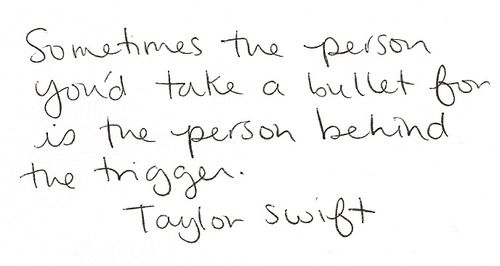 Sometimes the person
you'd take a bullet for
is the person behind
the trigger.
Taylor Swift